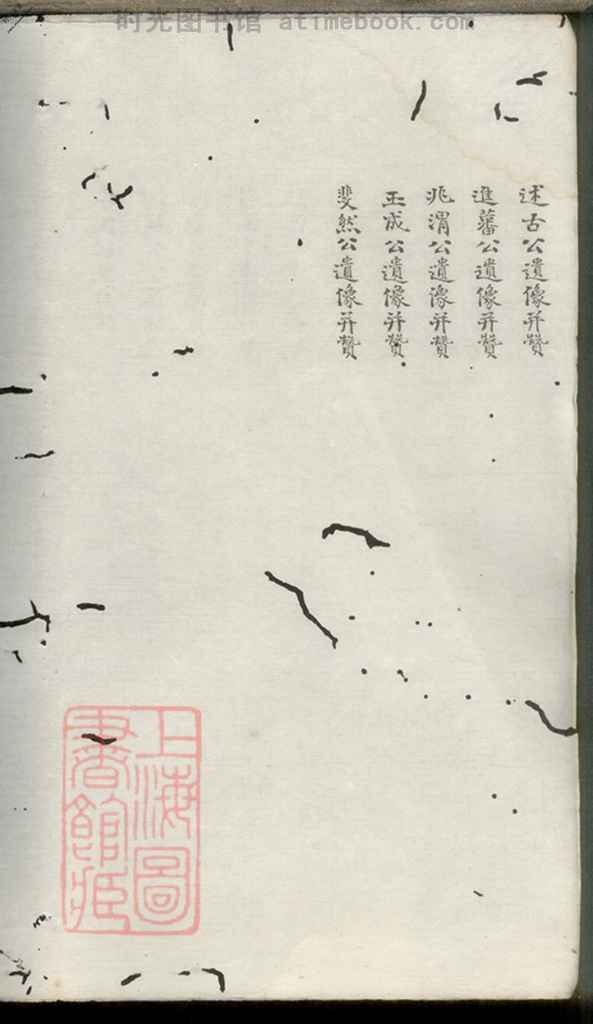 时光图书馆 atimebook.com
述古公遺像并贊
進蕃公遺像并贊
兆渭公遺像并贊
玉成公遺像并贊
斐然公遺像并贊
上海圖
書館藏